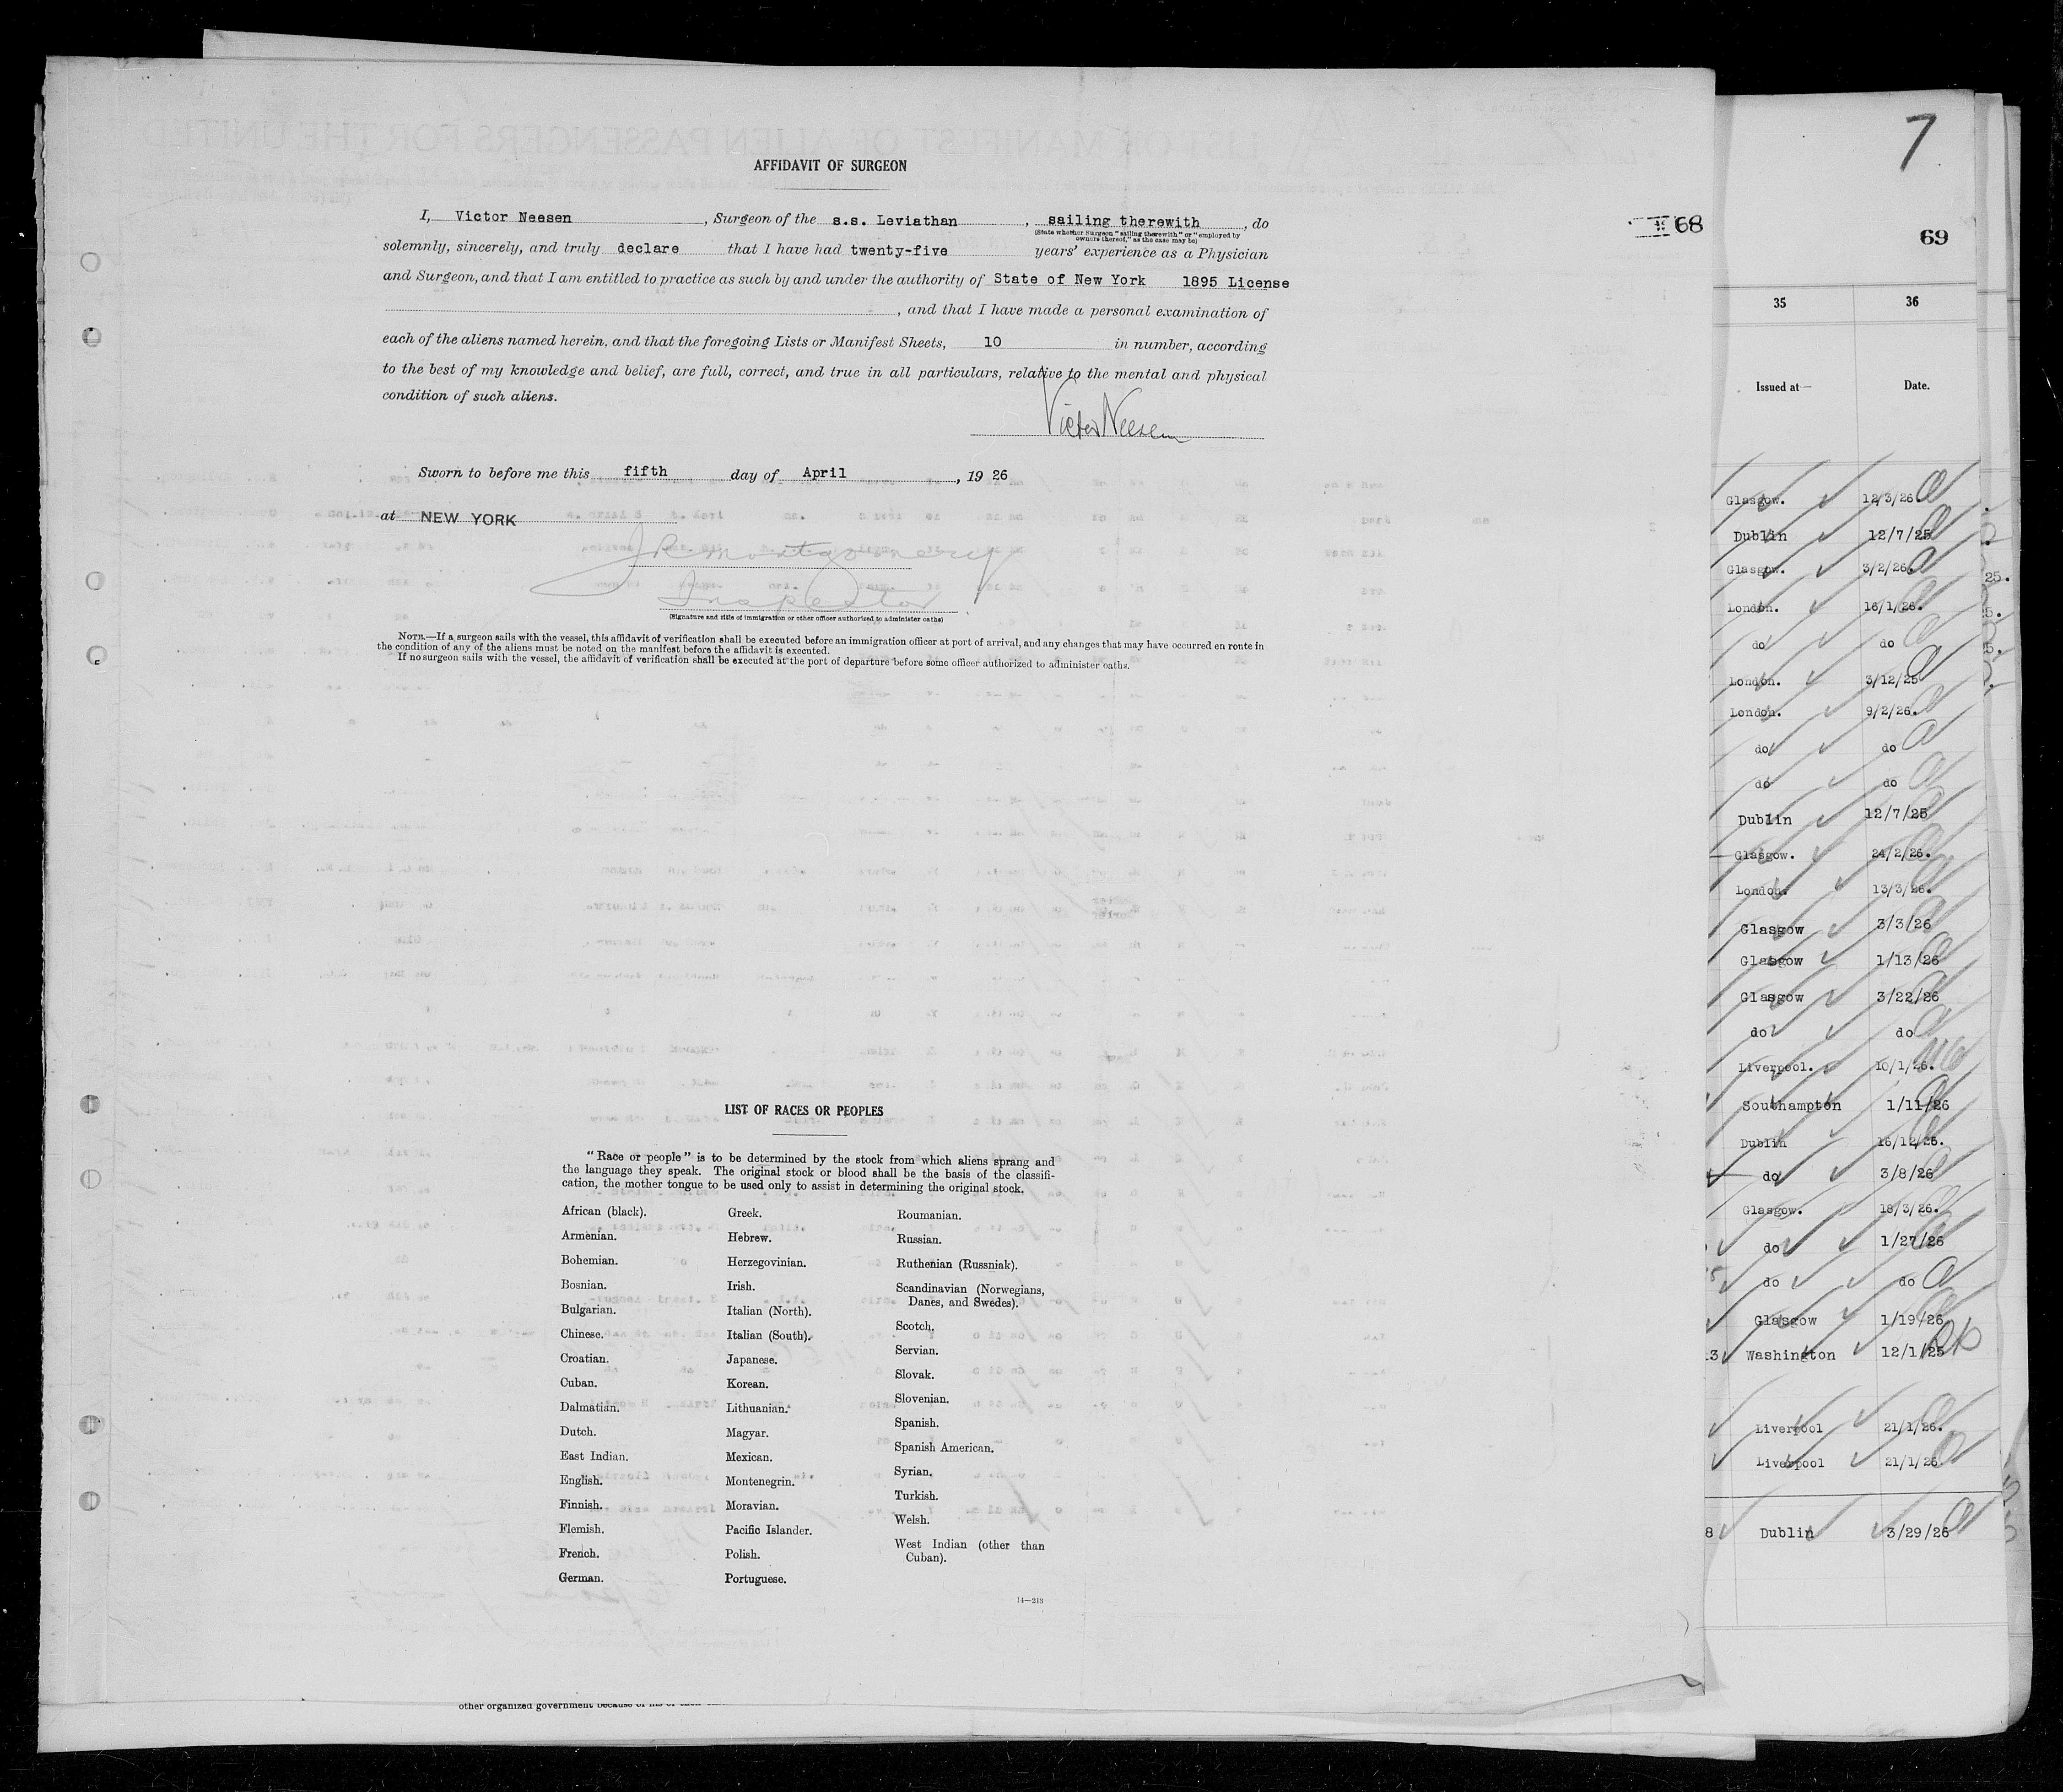 AFFIDAVIT OF SURGEON
I, Victor Neesen, Surgeon of the s.s. Leviathan, sailing therewith, do
(State whether Surgeon "sailing therewith" or "employed by
owners thereof," as the case may be)
solemnly, sincerely, and truly declare that I have had twenty-five years' experience as a Physician
and Surgeon, and that I am entitled to practice as such by and under the authority of State of New York 1895 License
, and that I have made a personal examination of
each of the aliens named herein, and that the foregoing Lists or Manifest Sheets, 10 in number, according
to the best of my knowledge and belief, are full, correct, and true in all particulars, relative to the mental and physical
condition of such aliens.
Victor Neesen
Sworn to before me this fifth day of April, 19 26
at NEW YORK
J R Montgomery
Inspector
(Signature and title of immigration or other officer authorized to administer oaths)
NOTE.—If a surgeon sails with the vessel, this affidavit of verification shall be executed before an immigration officer at port of arrival, and any changes that may have occurred en route in
the condition of any of the aliens must be noted on the manifest before the affidavit is executed.
If no surgeon sails with the vessel, the affidavit of verification shall be executed at the port of departure before some officer authorized to administer oaths.
LIST OF RACES OR PEOPLES
"Race or people" is to be determined by the stock from which aliens sprang and
the language they speak. The original stock or blood shall be the basis of the classifi-
cation, the mother tongue to be used only to assist in determining the original stock.
African (black).
Armenian.
Bohemian.
Bosnian.
Bulgarian.
Chinese.
Croatian.
Cuban.
Dalmatian.
Dutch.
East Indian.
English.
Finnish.
Flemish.
French.
German.
Greek.
Hebrew.
Herzegovinian.
Irish.
Italian (North).
Italian (South).
Japanese.
Korean.
Lithuanian.
Magyar.
Mexican.
Montenegrin.
Moravian.
Pacific Islander.
Polish.
Portuguese.
Roumanian.
Russian.
Ruthenian (Russniak).
Scandinavian (Norwegians,
Danes, and Swedes).
Scotch.
Servian.
Slovak.
Slovenian.
Spanish.
Spanish American.
Syrian.
Turkish.
Welsh.
West Indian (other than
Cuban).
14—213
other organized government because of his or their
68
7
69
35 36
Issued at— Date.
Glasgow. 12/3/26
Dublin 12/7/25
Glasgow. 3/2/26.
London. 16/1/26.
do do
London. 3/12/25
London. 9/2/26.
do do
do do
Dublin 12/7/25
Glasgow. 24/2/26.
London. 13/3/26.
Glasgow 3/3/26
Glasgow 1/13/26
Glasgow 3/22/26
do do
Liverpool. 10/1/26.
Southampton 1/11/26
Dublin 16/12/25.
do 3/8/26
Glasgow. 18/3/26.
do 1/27/26
do do
Glasgow 1/19/26
Washington 12/1/25
Liverpool 21/1/26.
Liverpool 21/1/26
Dublin 3/29/26